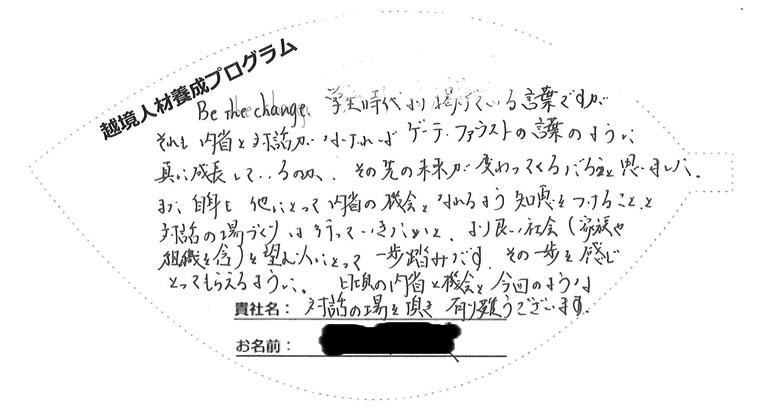 越境人材養成プログラム
Be the change. 学生時代より掲げている言葉ですが
それも内省と対話がなければ ゲーテ・ファウストの言葉のように
真に成長しているのか、その先の未来が変わってくるだろうと思いました。
また、自身も他にとって内省の機会となれるよう 知恵をつけることと
対話の場づくりは行っていきたいと、より良い社会(家族や
組織を含)を望む人にとって一歩踏みだす、その一歩を感じ
とってもらえるように。 日頃の内省と機会と今回のような
貴社名: 対話の場を頂き 有り難うございます。
お名前: